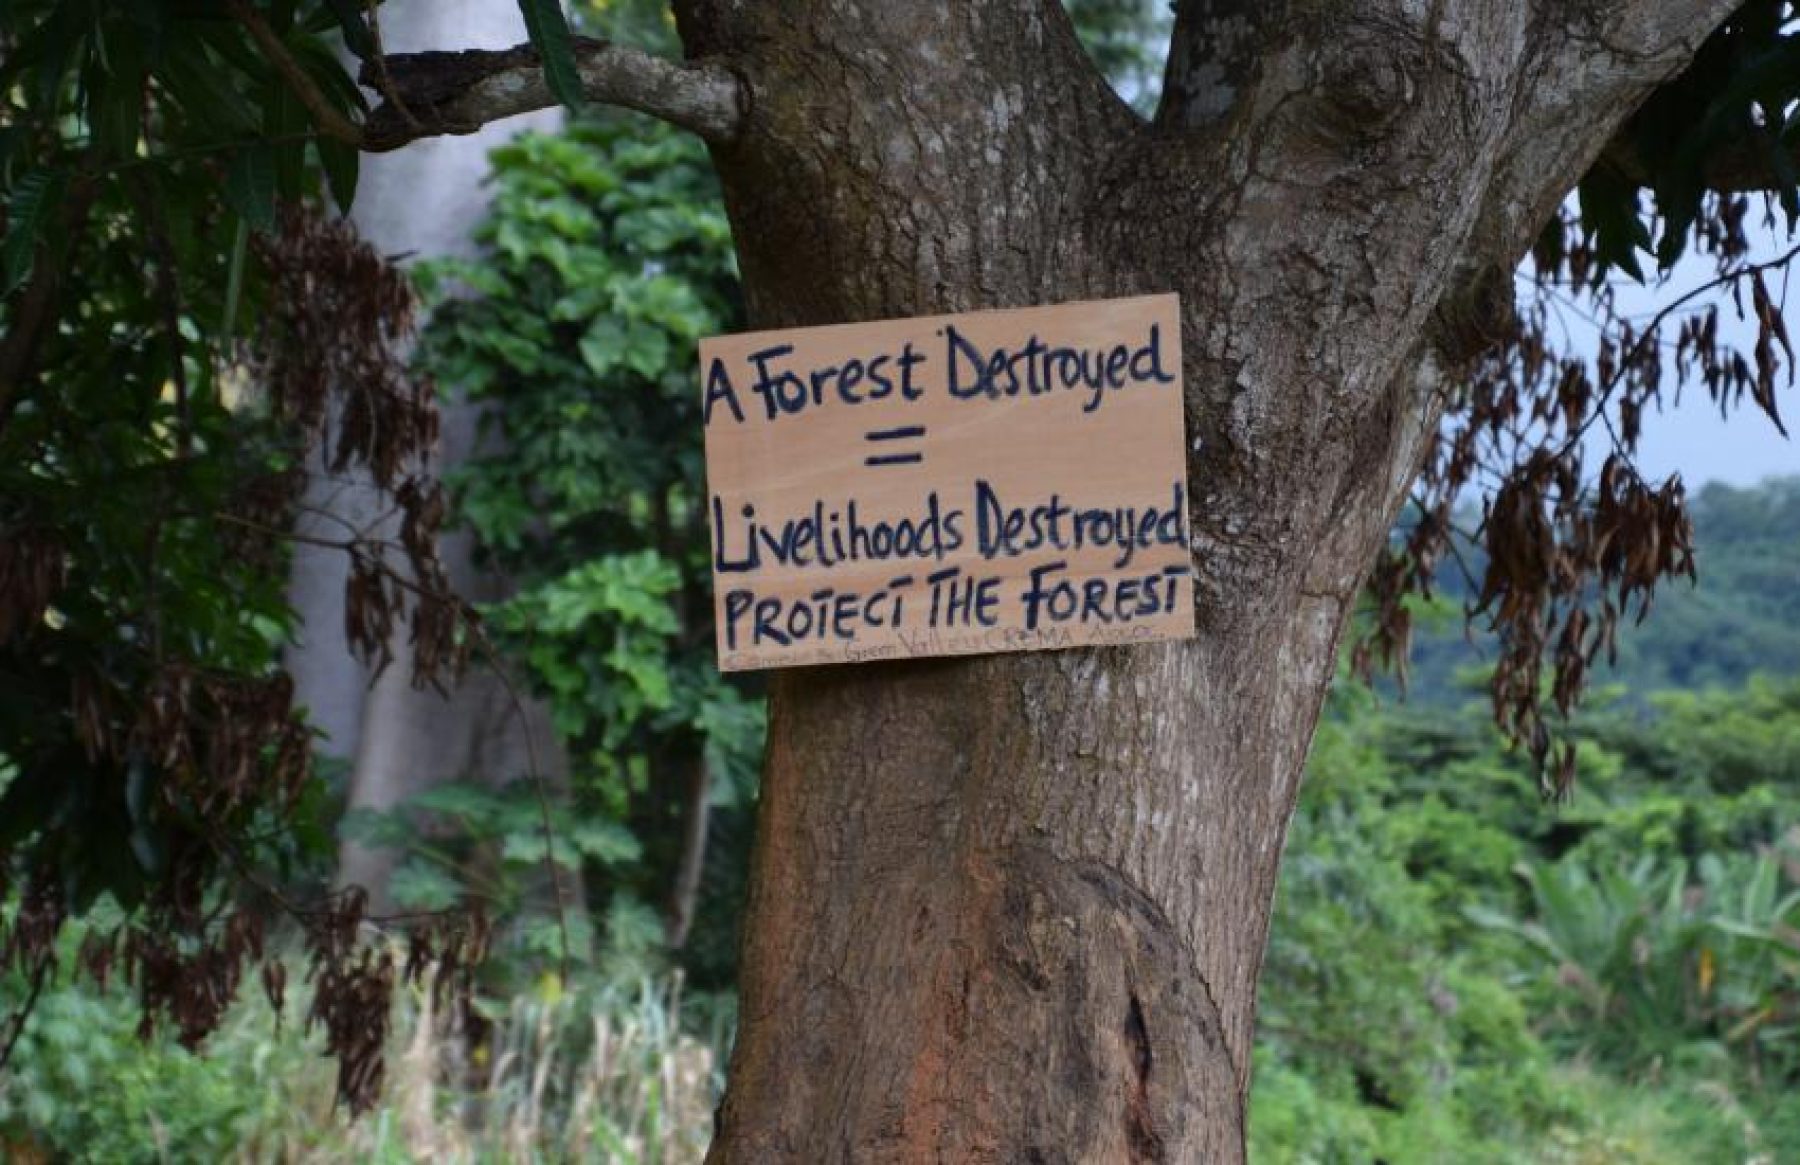 A Forest Destroyed
=
Livelihoods Destroyed
PROTECT THE FOREST
Green CREMA